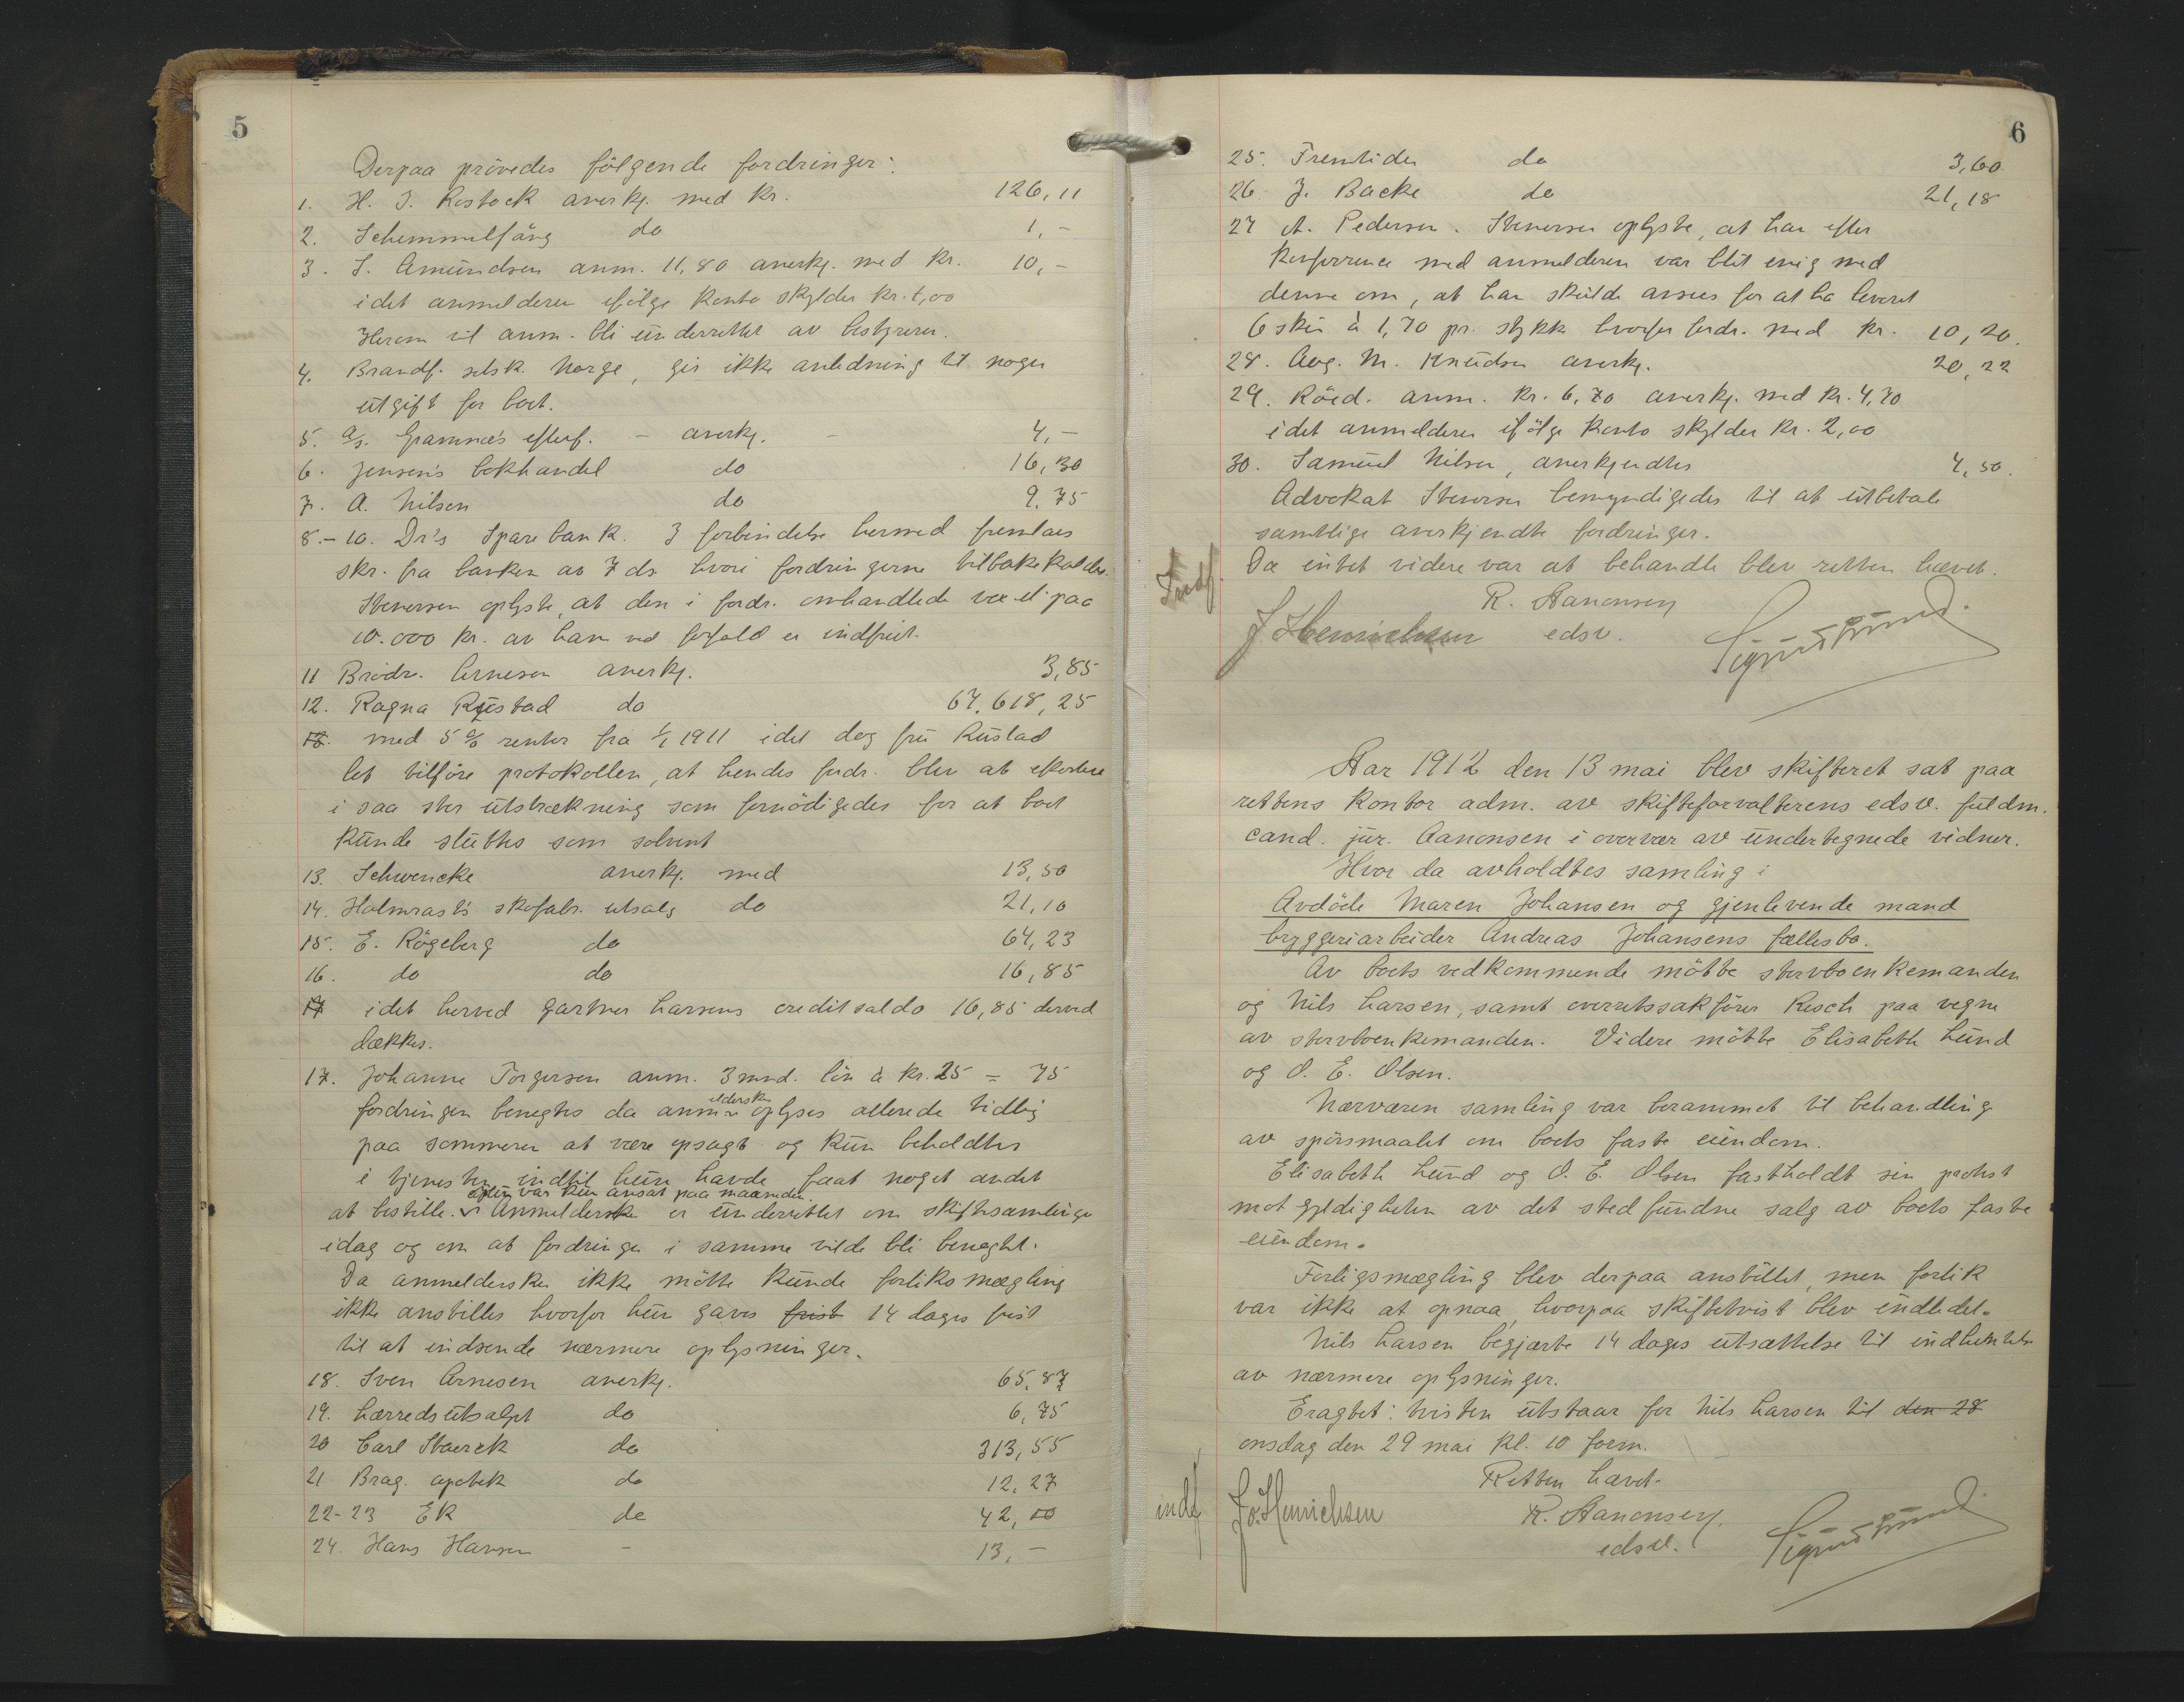 5
Derpaa prövedes fölgende fordringer:
1. H. J. Rostock anerkj. med kr. 126,11
2. Schemmelfäng do 1,-
3. S. Amundsen anm. 11,80 anerkj. med kr. 10,-
idet anmelderen ifölge konto skylder kr. 1,00
Herom vil anm. bli underrettet av bestyreren.
4. Brandf. selsk. Norge, gir ikke anledning til nogen
utgift for boet.
5. a/s. Gramnæs efterf. - anerkj. - 4,-
6. Jensen's bokhandel do 16,30
7. A. Nilsen do 9,75
8.-10. Dr's Sparebank. I forbindelse hermed fremlaes
skr. fra banken av 7 ds. hvori fordringerne tilbakekaldes.
Stenersen oplyste, at den i fordr. omhandlede vexel paa
10.000 kr. av ham ved forfald er indfriet.
11 Brödr. Arnesen anerkj. 3,85
12. Ragna Rustad do 67.618,25
13. med 5 % renter fra 1/1 1911 idet dog fru Rustad
let tilföre protokollen, at hendes fordr. blev at
i saa stor utstrækning som fornödigedes for at boet
kunde sluttes som solvent
13. Schwencke anerkj. med 13,50
14. Holmrast's skofabr. utsalg do 21,10
15. E. Rögeberg do 64,23
16. do do 16,85
17 idet herved gartner Larsens creditsaldo 16,85 derved
dækkes.
17. Johanne Torgersen anm. 3 mnd. lön à kr. 25 = 75
fordringen benegtes da anmeldersken oplyses allerede tidlig
paa sommeren at være opsagt og kun beholdtes
i tjenesten indtil hun havde faat noget andet
at bestille. hun var kun ansat paa maaneden. Anmeldersken er underrettet om skiftesamlingen
idag og om at fordringen i samme vilde bli benegtet.
Da anmeldersken ikke mötte kunde forliksmægling
ikke anstilles hvorfor hun gaves frist 14 dages frist
til at indsende nærmere oplysninger.
18. Sven Arnesen anerkj. 65,87
19. Lærredsutsalget do 6,75
20 Carl Staerck do 313,55
21 Brag. apotek do 12,27
22-23 EK do 42,00
24. Hans Hansen - 13,-
6
25. Fremtiden do 3,60
26. J. Backe do 21,18
27 A. Pedersen. Stenersen oplyste, at han efter
konferrence med anmelderen var blit enig med
denne om, at han skulde ansees for at ha leveret
6 ski à 1,70 pr. stykk hvorfor fordr. med kr. 10,20.
28. Aug. M. Knudsen anerkj. 20,22
29. Röed. anm. kr. 6,70 anerkj. med kr. 4,70
idet anmelderen ifölge konto skylder kr. 2,00
30. Samuel Nilsen, anerkjendtes 4,50.
Advokat Stenersen bemyndigedes til at utbetale
samtlige anerkjendte fordringer.
Da intet videre var at behandle blev retten hævet.
Indf.
R. Aanonsen
J Henrichsen edsv.
Aar 1912 den 13 mai blev skifteret sat paa
rettens kontor adm. av skifteforvalterens edsv. fuldm.
cand. jur. Aanonsen i overvær av undertegnede vidner.
Hvor da avholdtes samling i
Avdöde Maren Johansen og gjenlevende mand
bryggeriarbeider Andreas Johansens fællesbo.
Av boets vedkommende mötte stervboenkemanden
og Nils Larsen, samt overretssakförer Resch paa vegne
av stervboenkemanden. Videre mötte Elisabeth Lund
og O. E. Olsen.
Nærværen samling var berammet til behandling
av spörsmaalet om boets faste eiendom.
Elisabeth Lund og O. E. Olsen fastholdt sin protest
mot gyldigheten av det stedfundne salg av boets faste
eiendom.
Forligsmægling blev derpaa anstillet, men forlik
var ikke at opnaa, hvorpaa skiftetvist blev indledet.
Nils Larsen begjærte 14 dages utsættelse til indhentelse
av nærmere oplysninger.
Eragtet: tvisten utstaar for Nils Larsen til den 28
onsdag den 29 mai kl. 10 form.
Retten hævet.
indf
Jo. Henrichsen R. Aanonsen
edsv.